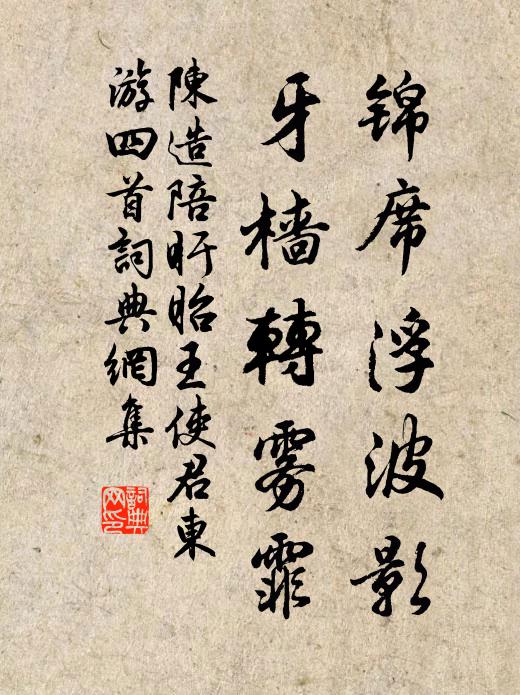 锦席浮波影
牙檣轉雾霏
陳造陪盱眙王使君東
游四首詞典網集
詞典
网印